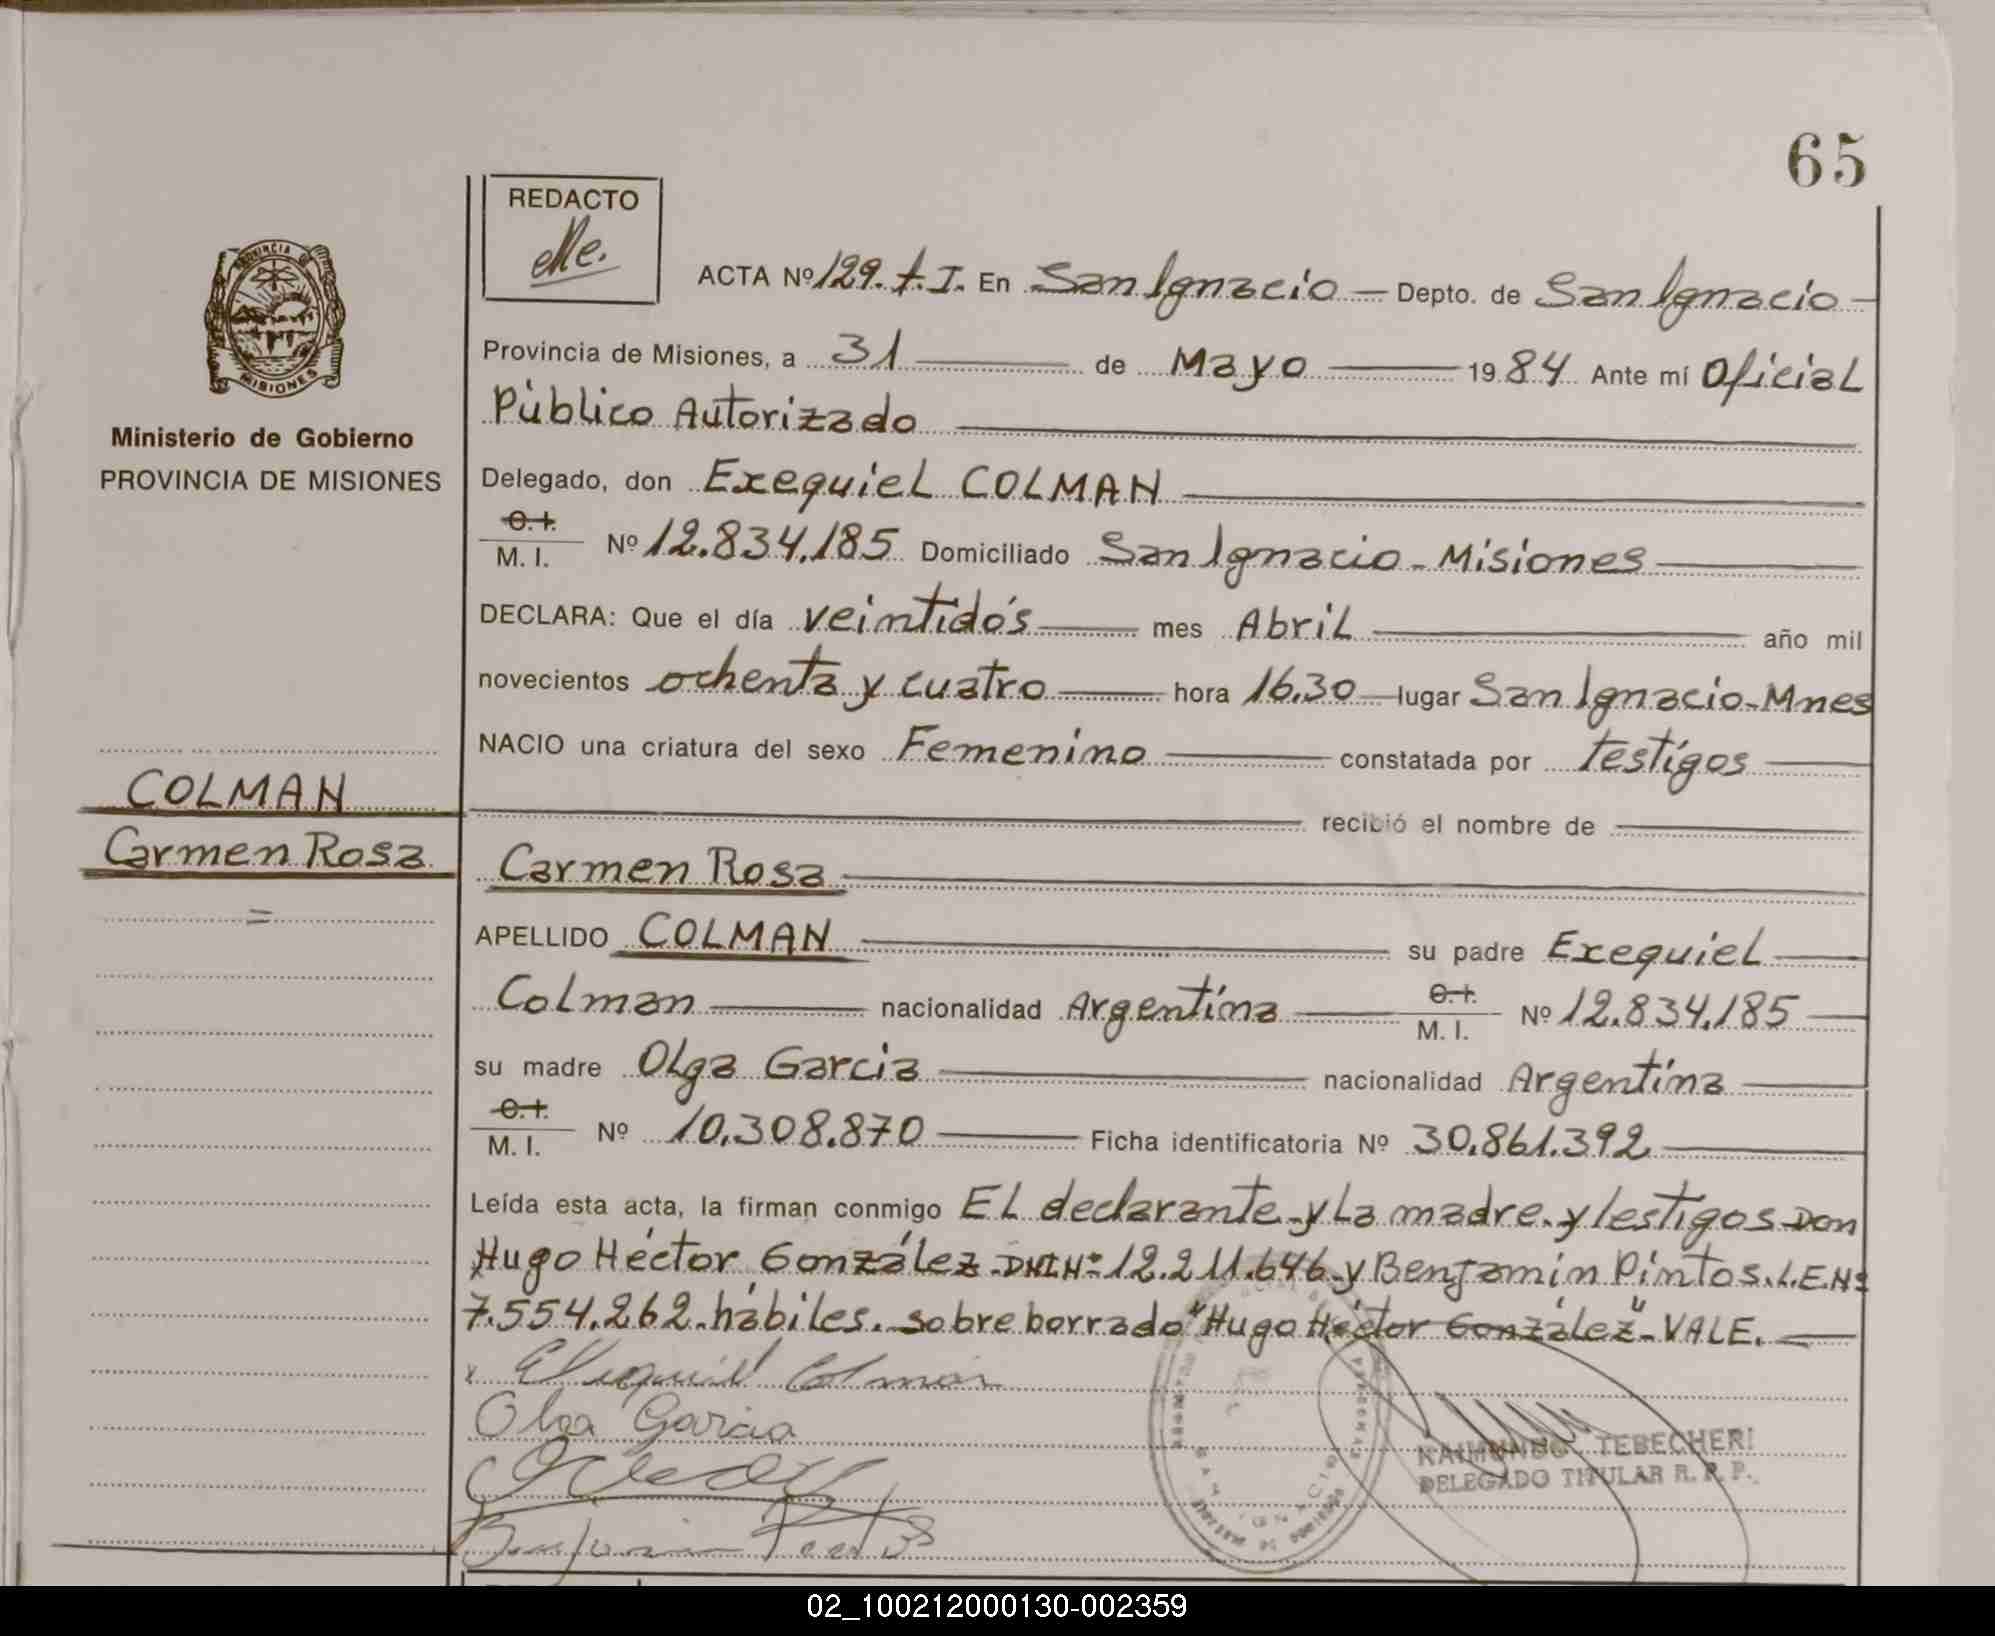 65
REDACTO
PROVINCIA DE
MISIONES
Ministerio de Gobierno
PROVINCIA DE MISIONES
ACTA Nº 129. t. I. En San Ignacio Depto. de San Ignacio
Provincia de Misiones, a 31 de Mayo 1984 Ante mí Oficial
Público Autorizado
Delegado, don Exequiel COLMAN
C.I.
M. I. Nº 12.834.185 Domiciliado San Ignacio - Misiones
DECLARA: Que el día veintidós mes Abril año mil
novecientos ochenta y cuatro hora 16.30 lugar San Ignacio - Mnes
NACIO una criatura del sexo Femenino constatada por testigos
recibió el nombre de
COLMAN
Carmen Rosa
=
Carmen Rosa
APELLIDO COLMAN su padre Exequiel
Colman nacionalidad Argentina C.I. M. I. Nº 12.834.185
su madre Olga Garcia nacionalidad Argentina
C.I.
M. I. Nº 10.308.870 Ficha identificatoria Nº 30.861.392
Leída esta acta, la firman conmigo El declarante - y La madre - y testigos Don
Hugo Héctor González - DNI Nº 12.211.646 - y Benjamín Pintos. L.E.Nº
7.554.262. hábiles. sobre borrado "Hugo Héctor González" - VALE.
Exequiel Colman
Olga Garcia
RAIMUNDO TEBECHERI
DELEGADO TITULAR R. P. P.
02_100212000130-002359